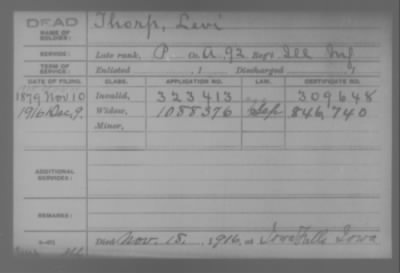 DEAD Thorp, Levi
NAME OF SOLDIER:
SERVICE: Late rank, P Co. A, 92 Reg't Ill Inf
TERM OF SERVICE: Enlisted , 1 Discharged , 1
DATE OF FILING. CLASS. APPLICATION NO. LAW. CERTIFICATE NO.
1879 Nov 10 Invalid, 323413 309648
1916 Dec. 9. Widow, 1088376 846740
Minor,
ADDITIONAL SERVICES:
REMARKS:
Died Nov. 18, 1916, at Iowa Falls Iowa